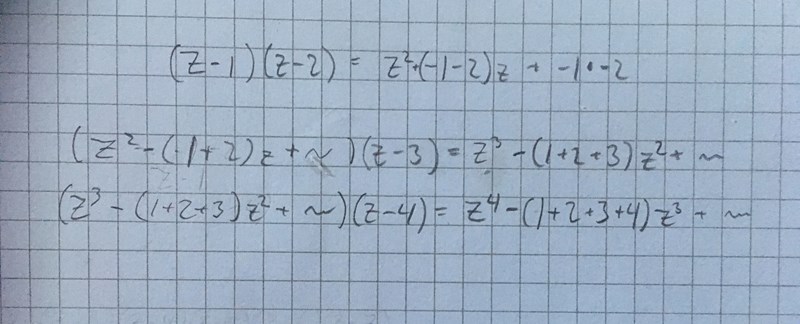 (z-1)(z-2) = z²+(-1-2)z + -1·-2
(z²-(1+2)z+~)(z-3) = z³-(1+2+3)z²+~
(z³-(1+2+3)z²+~)(z-4) = z⁴-(1+2+3+4)z³+~